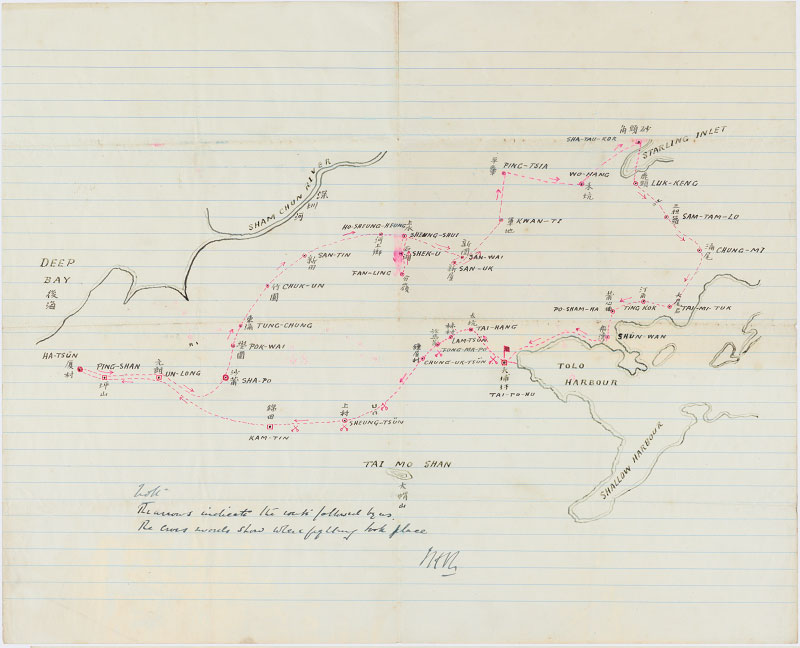 角頭沙
SHA-TAU-KOR
STARLING INLET
平輋
PING-TSIA
WO-HANG
禾坑
鹿頸
LUK-KENG
SHAM CHUN RIVER
深圳河
三担籮
SAM-TAM-LO
KWAN-TI
軍地
HO-SHEUNG-HEUNG
河上鄉
上水
SHEUNG-SHUI
涌尾
CHUNG-MI
DEEP
BAY
後海
SAN-TIN
新田
SHEK-U
石湖
新圍
SAN-WAI
SAN-UK
新屋
FAN-LING
粉嶺
CHUK-UN
竹園
汀角
TING KOR
大尾篤
TAI-MI-TUK
PO-SHAM-HA
TUNG-CHUNG
東涌
禾坑
TAI-HANG
林村
LAM-TSÜN
TONG-MA-PO
鍾屋村
CHUNG-UK-TSÜN
SHUN-WAN
POK-WAI
壆圍
HA-TSÜN
厦村
PING-SHAN
坪山
元朗
UN-LONG
沙莆
SHA-PO
大埔圩
TAI-PO-HU
TOLO
HARBOUR
錦田
KAM-TIN
上村
SHEUNG-TSÜN
SHALLOW HARBOUR
TAI MO SHAN
大帽山
Note
The arrows indicate the route followed by us.
The cross swords show where fighting took place